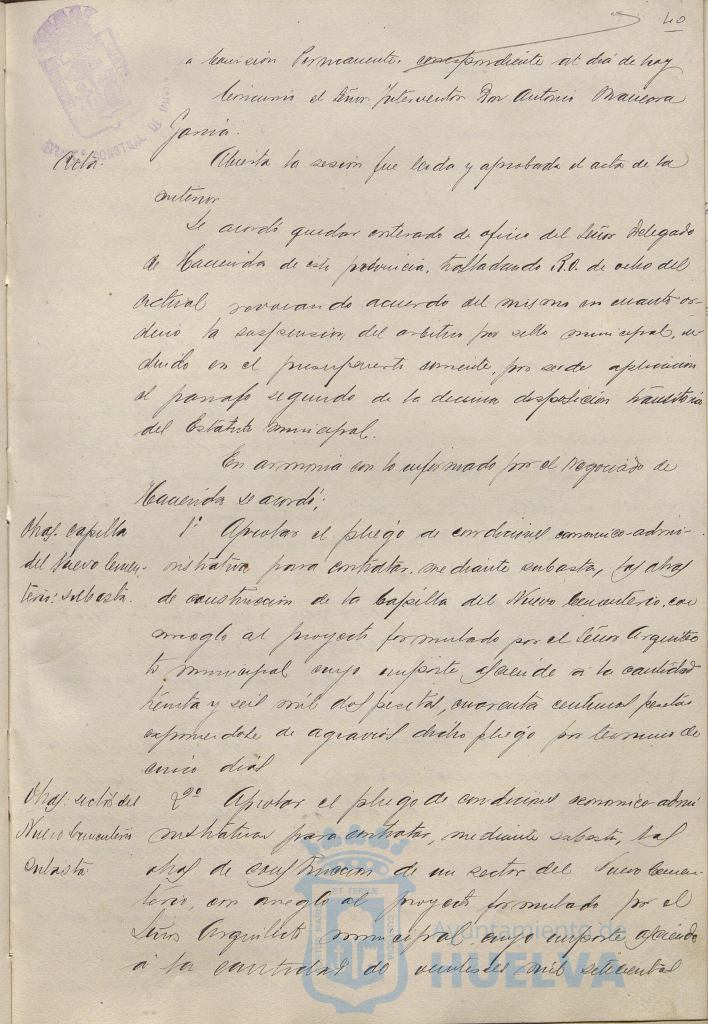 40
a Comision Permanente correspondiente al dia de hoy
Concurrió el Señor Interventor Don Antonio
Garcia.
Acta.
Abierta la sesion fue leida y aprobada el acta de la
anterior
Se acordó quedar enterado de oficio del Señor Delegado
de Hacienda de esta provincia, trasladando R.O. de ocho del
actual revocando acuerdo del mismo en cuanto or-
denó la suspension del arbitrio por sello municipal, in-
cluido en el presupuesto corriente, por ser de aplicacion
el parrafo segundo de la decima disposicion transitoria
del Estatuto municipal.
En armonia con lo informado por el Negociado de
Hacienda se acordó;
Obras capilla
del Nuevo Cemen-
terio: subasta.
1º Aprobar el pliego de condiciones economico-admi-
nistrativas para contratar, mediante subasta, las obras
de construccion de la Capilla del Nuevo Cementerio, con
arreglo al proyecto formulado por el Señor Arquitec-
to municipal cuyo importe asciende a la cantidad
treinta y seis mil dos pesetas, cuarenta centimos pesetas
exponiendose de agravios dicho pliego por termino de
cinco dias
Obras sector del
Nuevo Cementerio
subasta
2º Aprobar el pliego de condiciones economico-admi
nistrativas para contratar, mediante subasta, las
obras de construccion de un sector del Nuevo Cemen-
terio, con arreglo al proyecto formulado por el
Señor Arquitecto municipal cuyo importe asciende
a la cantidad de mil setecientas
Ayuntamiento de
HUELVA